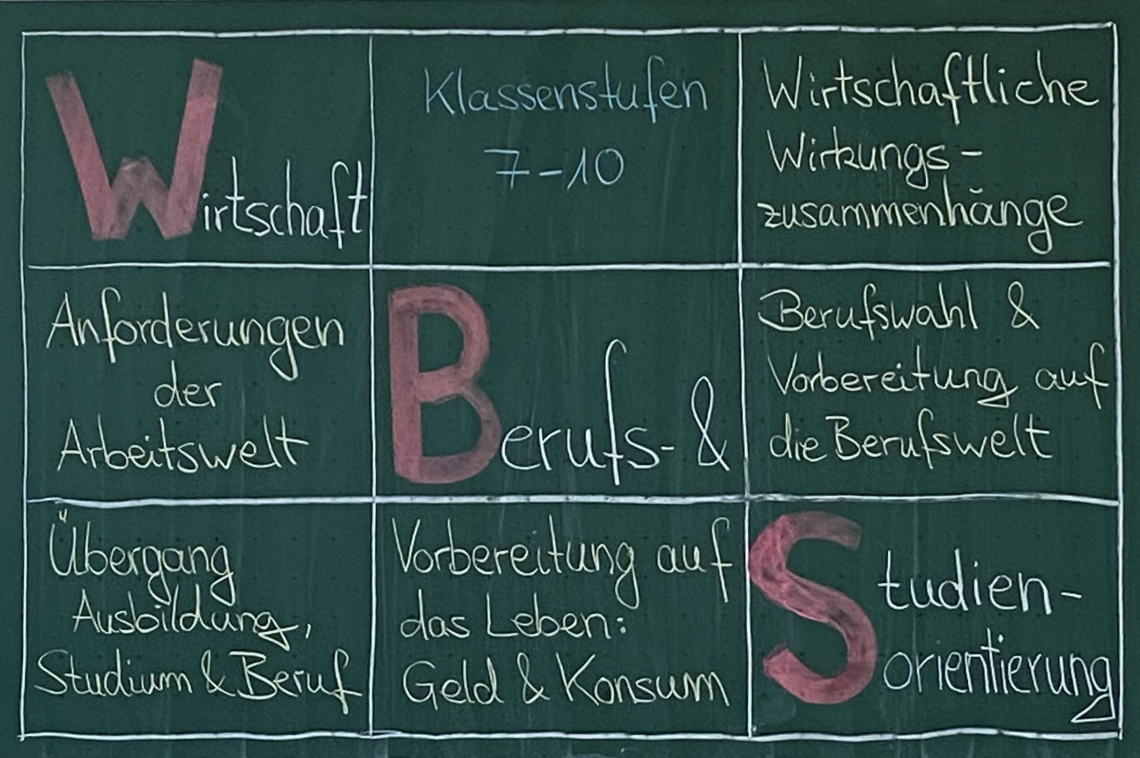 Wirtschaft
Klassenstufen
7-10
Wirtschaftliche
Wirkungs-
zusammenhänge
Anforderungen
der
Arbeitswelt
Berufs- &
Berufswahl &
Vorbereitung auf
die Berufswelt
Übergang
Ausbildung,
Studium & Beruf
Vorbereitung auf
das Leben:
Geld & Konsum
Studien-
orientierung